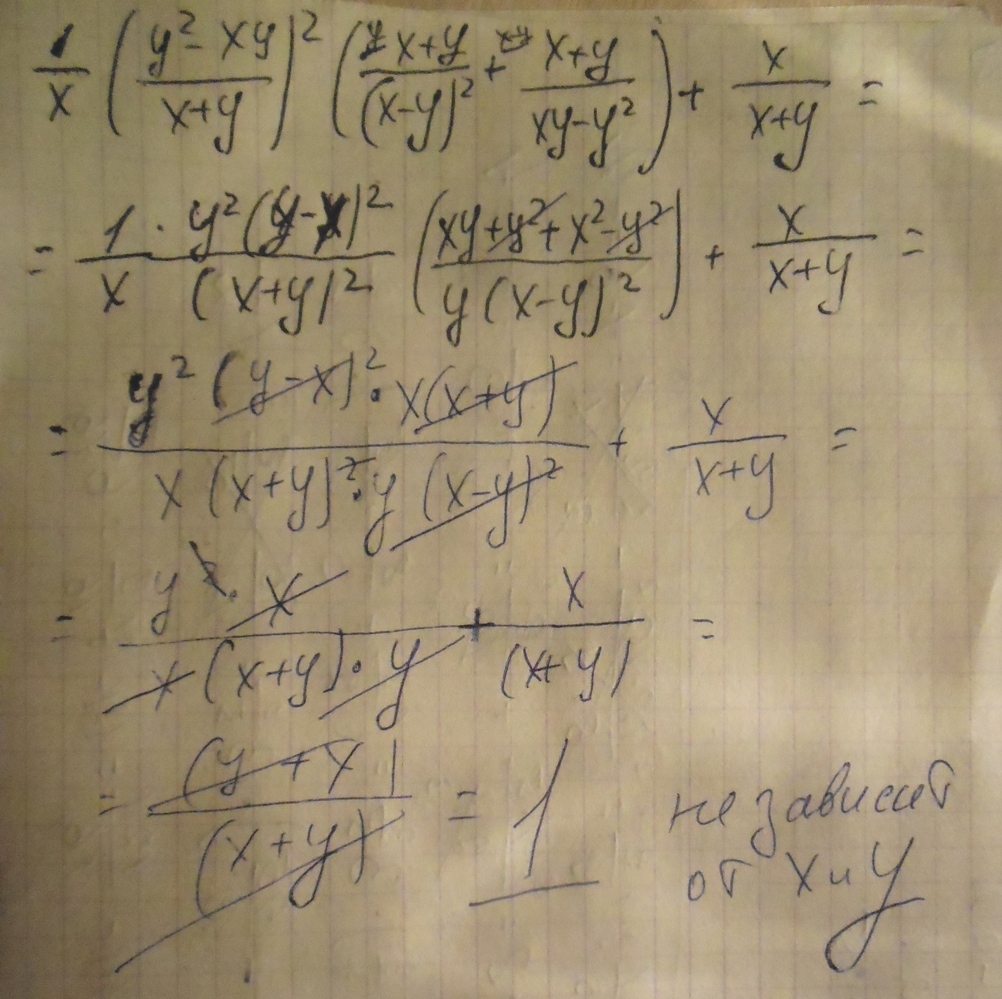 1/x ((y²-xy)/(x+y))² ((x+y)/(x-y)² + (x+y)/(xy-y²)) + x/(x+y) =
= 1/x · y²(y-x)²/(x+y)² ((xy+y²+x²-y²)/(y(x-y)²)) + x/(x+y) =
= (y²(y-x)²·x(x+y))/(x(x+y)²·y(x-y)²) + x/(x+y) =
= (y²·x)/(x(x+y)·y) + x/(x+y) =
= (y+x)/(x+y) = 1 не зависит
от x и y